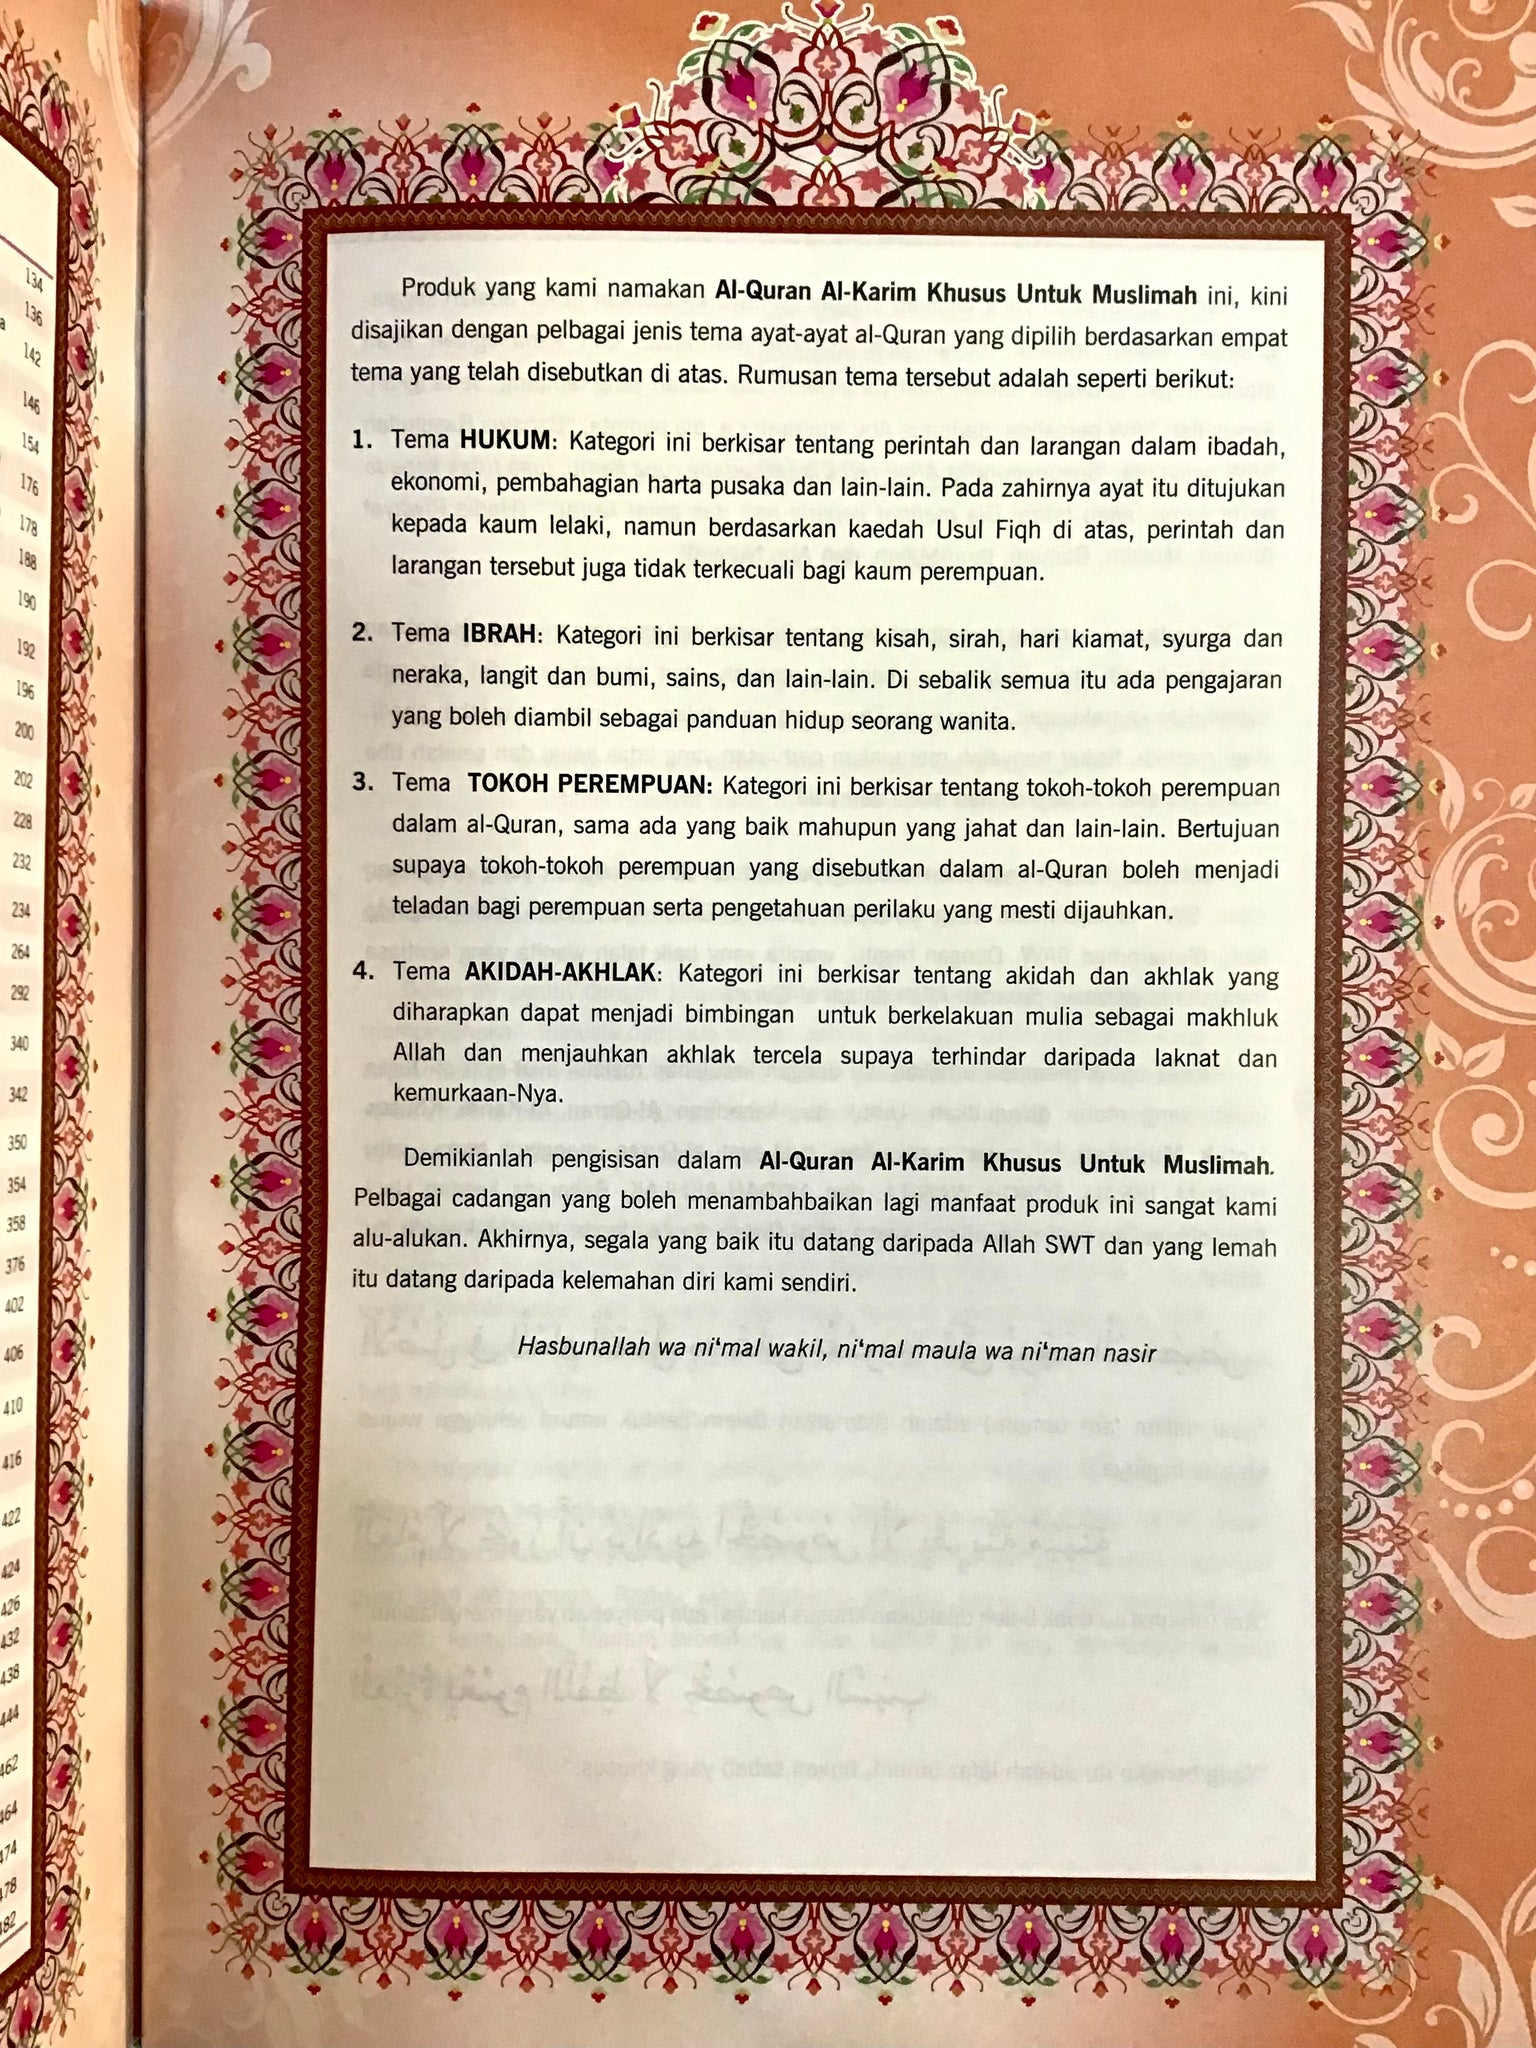 134
136
142
146
154
176
178
188
190
192
196
200
202
228
232
234
264
292
340
342
350
354
358
376
402
406
410
416
422
424
426
432
438
444
462
464
474
478
482
Produk yang kami namakan Al-Quran Al-Karim Khusus Untuk Muslimah ini, kini
disajikan dengan pelbagai jenis tema ayat-ayat al-Quran yang dipilih berdasarkan empat
tema yang telah disebutkan di atas. Rumusan tema tersebut adalah seperti berikut:
1. Tema HUKUM: Kategori ini berkisar tentang perintah dan larangan dalam ibadah,
ekonomi, pembahagian harta pusaka dan lain-lain. Pada zahirnya ayat itu ditujukan
kepada kaum lelaki, namun berdasarkan kaedah Usul Fiqh di atas, perintah dan
larangan tersebut juga tidak terkecuali bagi kaum perempuan.
2. Tema IBRAH: Kategori ini berkisar tentang kisah, sirah, hari kiamat, syurga dan
neraka, langit dan bumi, sains, dan lain-lain. Di sebalik semua itu ada pengajaran
yang boleh diambil sebagai panduan hidup seorang wanita.
3. Tema TOKOH PEREMPUAN: Kategori ini berkisar tentang tokoh-tokoh perempuan
dalam al-Quran, sama ada yang baik mahupun yang jahat dan lain-lain. Bertujuan
supaya tokoh-tokoh perempuan yang disebutkan dalam al-Quran boleh menjadi
teladan bagi perempuan serta pengetahuan perilaku yang mesti dijauhkan.
4. Tema AKIDAH-AKHLAK: Kategori ini berkisar tentang akidah dan akhlak yang
diharapkan dapat menjadi bimbingan untuk berkelakuan mulia sebagai makhluk
Allah dan menjauhkan akhlak tercela supaya terhindar daripada laknat dan
kemurkaan-Nya.
Demikianlah pengisisan dalam Al-Quran Al-Karim Khusus Untuk Muslimah.
Pelbagai cadangan yang boleh menambahbaikan lagi manfaat produk ini sangat kami
alu-alukan. Akhirnya, segala yang baik itu datang daripada Allah SWT dan yang lemah
itu datang daripada kelemahan diri kami sendiri.
Hasbunallah wa ni‘mal wakil, ni‘mal maula wa ni‘man nasir